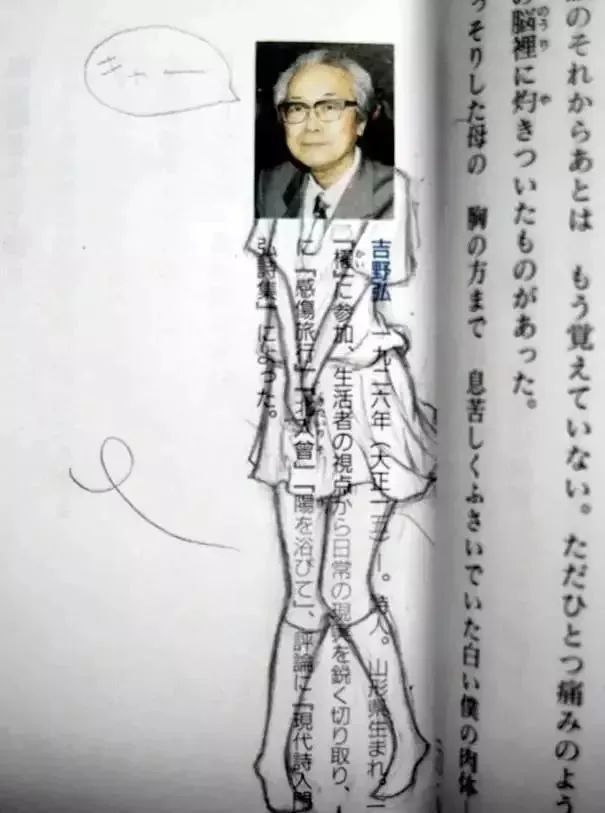 のそれからあとは　もう覚えていない。ただひとつ痛みのよう
の脳裡に灼きついたものがあった。
のうり
や
っそりした母の　胸の方まで　息苦しくふさいでいた白い僕の肉体
吉野弘　一九二六年（大正一五）ー。詩人。山形県生まれ。
「櫂」に参加、生活者の視点から日常の現実を鋭く切り取り、
かい
に『感傷旅行』『北入曽』『陽を浴びて』、評論に『現代詩入門
弘詩集』によった。
キャー